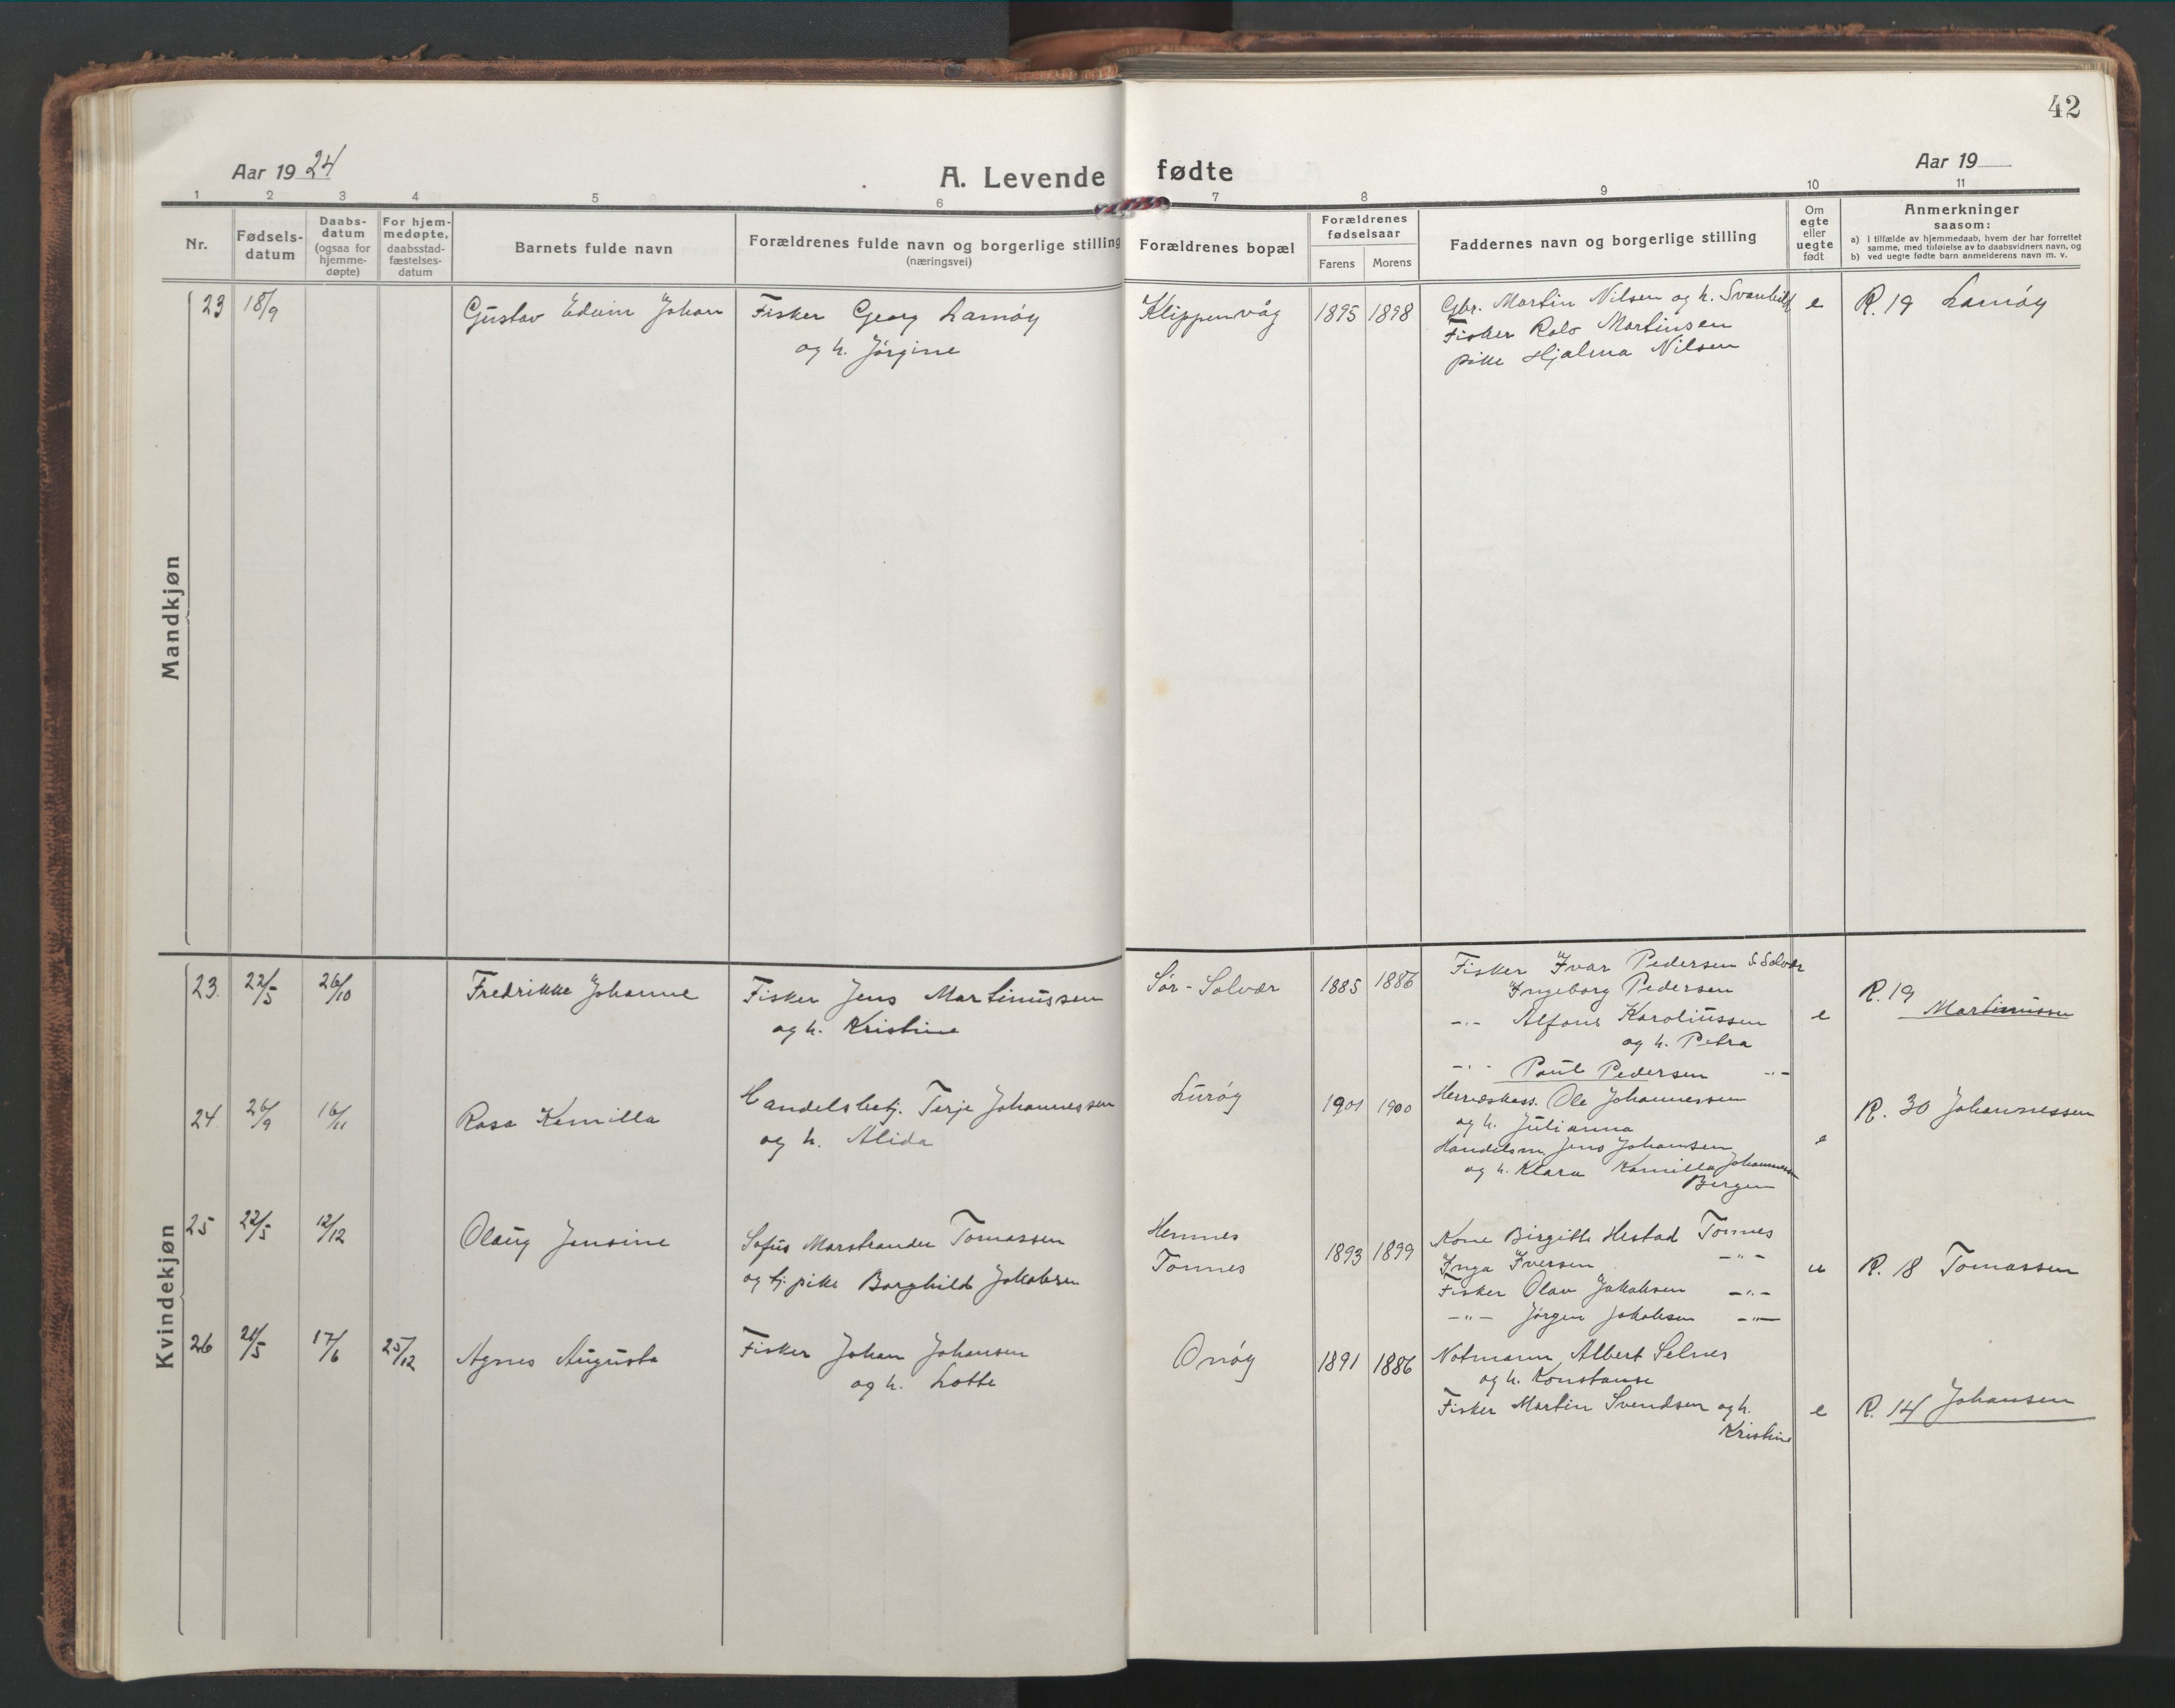 42
Aar 19 24
A. Levende fødte
Aar 19
1 2 3 4 5 6 7 8 9 10 11
Nr.
Fødsels-
datum
Daabs-
datum
(ogsaa for
hjemme-
døpte)
For hjem-
medøpte,
daabsstad-
fæstelses-
datum
Barnets fulde navn
Forældrenes fulde navn og borgerlige stilling
(næringsvei)
Forældrenes bopæl
Forældrenes
fødselsaar
Farens Morens
Faddernes navn og borgerlige stilling
Om
egte
eller
uegte
født
Anmerkninger
saasom:
a) i tilfælde av hjemmedaab, hvem der har forrettet
samme, med tilføielse av to daabsvidners navn, og
b) ved uegte fødte barn anmelderens navn m. v.
Mandkjøn
23 18/9 Gustav Edvin Johan
Fisker Georg Lamøy
og h. Jørgine
Klippenvåg 1895 1898
Gbr. Martin Nilsen og h. Svanhild
Fisker Rolo Martinsen
pike Hjalma Nilsen
e R. 19 Lamøy
Kvindekjøn
23. 22/5 26/10 Fredrikke Johanne
Fisker Jens Martinussen
og h. Kristine
Sør-Solvær 1885 1886
Fisker Ivar Pedersen S. Solvær
Ingeborg Pedersen
-"- Alfons Karoliussen
og h. Petra
-"- Paul Pedersen -"-
e R. 19
Martinussen
24. 26/9 16/11 Rosa Kamilla
Handelsbetj. Terje Johannessen
og h. Alida
Lurøy 1901 1900
Herredskass. Ole Johannessen
og h. Julianna
Handelsm. Jens Johansen
og h. Klara Kamilla Johannessen
Bergen
e R. 30 Johannessen
25 22/5 12/12 Olaug Jensine
Sofus Marstrander Tomassen
og tj. pike Borghild Jakobsen
Hemnes
Tonnes
1893 1899
Kone Birgitte Hestad Tonnes
Inga Iversen -"-
Fisker Olav Jakobsen -"-
-"- Jørgen Jakobsen -"-
u R. 18 Tomassen
26 21/5 17/6 25/12 Agnes Augusta
Fisker Johan Johansen
og h. Lotte
Onøy 1891 1886
Notmann Albert Selnes
og h. Konstanse
Fisker Martin Svendsen og h.
Kristine
e R. 14 Johansen